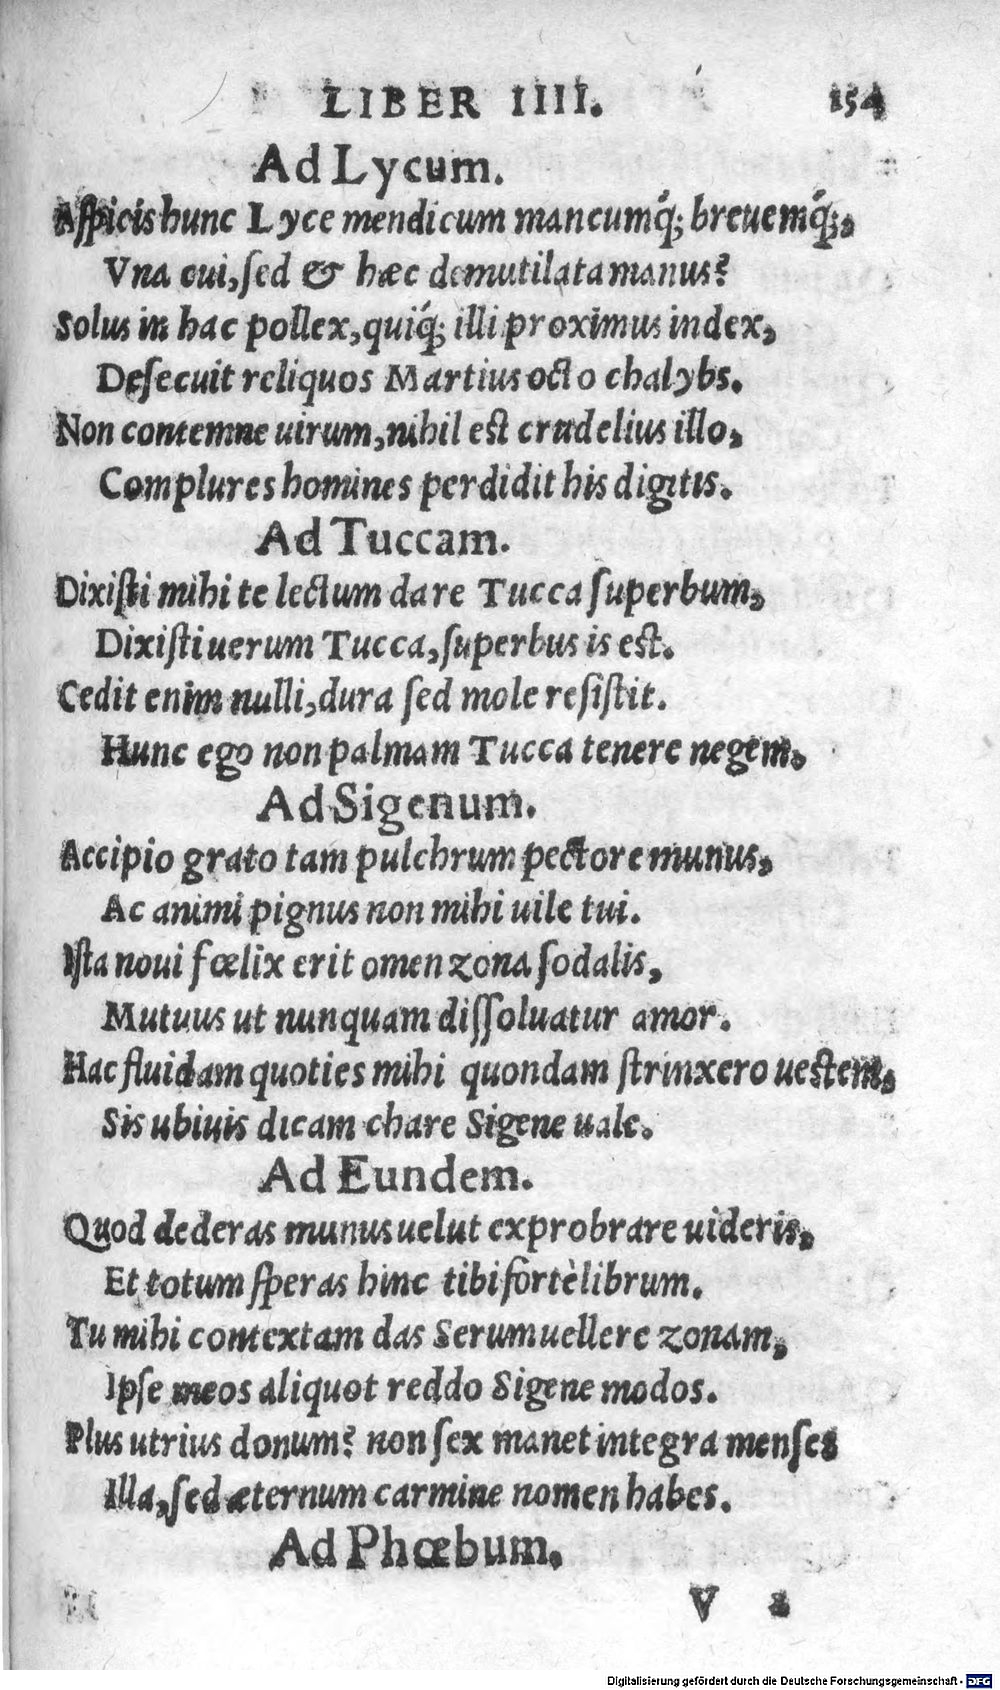 LIBER IIII. 154
Ad Lycum.
Aſpicis hunc Lyce mendicum mancumq́; breuemq́;,
Vna cui, ſed & hæc demutilata manus?
Solus in hac pollex, quiq́; illi proximus index,
Deſecuit reliquos Martius octo chalybs.
Non contemne uirum, nihil est crudelius illo,
Complures homines perdidit his digitis.
Ad Tuccam.
Dixiſti mihi te lectum dare Tucca ſuperbum,
Dixiſti uerum Tucca, ſuperbus is est.
Cedit enim nulli, dura ſed mole reſiſtit.
Hunc ego non palmam Tucca tenere negem.
Ad Sigenum.
Accipio grato tam pulchrum pectore munus,
Ac animi pignus non mihi uile tui.
Iſta noui fœlix erit omen zona ſodalis,
Mutuus ut nunquam diſſoluatur amor.
Hac fluidam quoties mihi quondam ſtrinxero uestem,
Sis ubiuis dicam chare Sigene uale.
Ad Eundem.
Quod dederas munus uelut exprobrare uideris,
Et totum ſperas hinc tibi fortè librum.
Tu mihi contextam das Serum uellere zonam,
Ipſe meos aliquot reddo Sigene modos.
Plus utrius donum? non ſex manet integra menſes
Illa, ſed æternum carmine nomen habes.
Ad Phœbum.
V 2
Digitalisierung gefördert durch die Deutsche Forschungsgemeinschaft - DFG